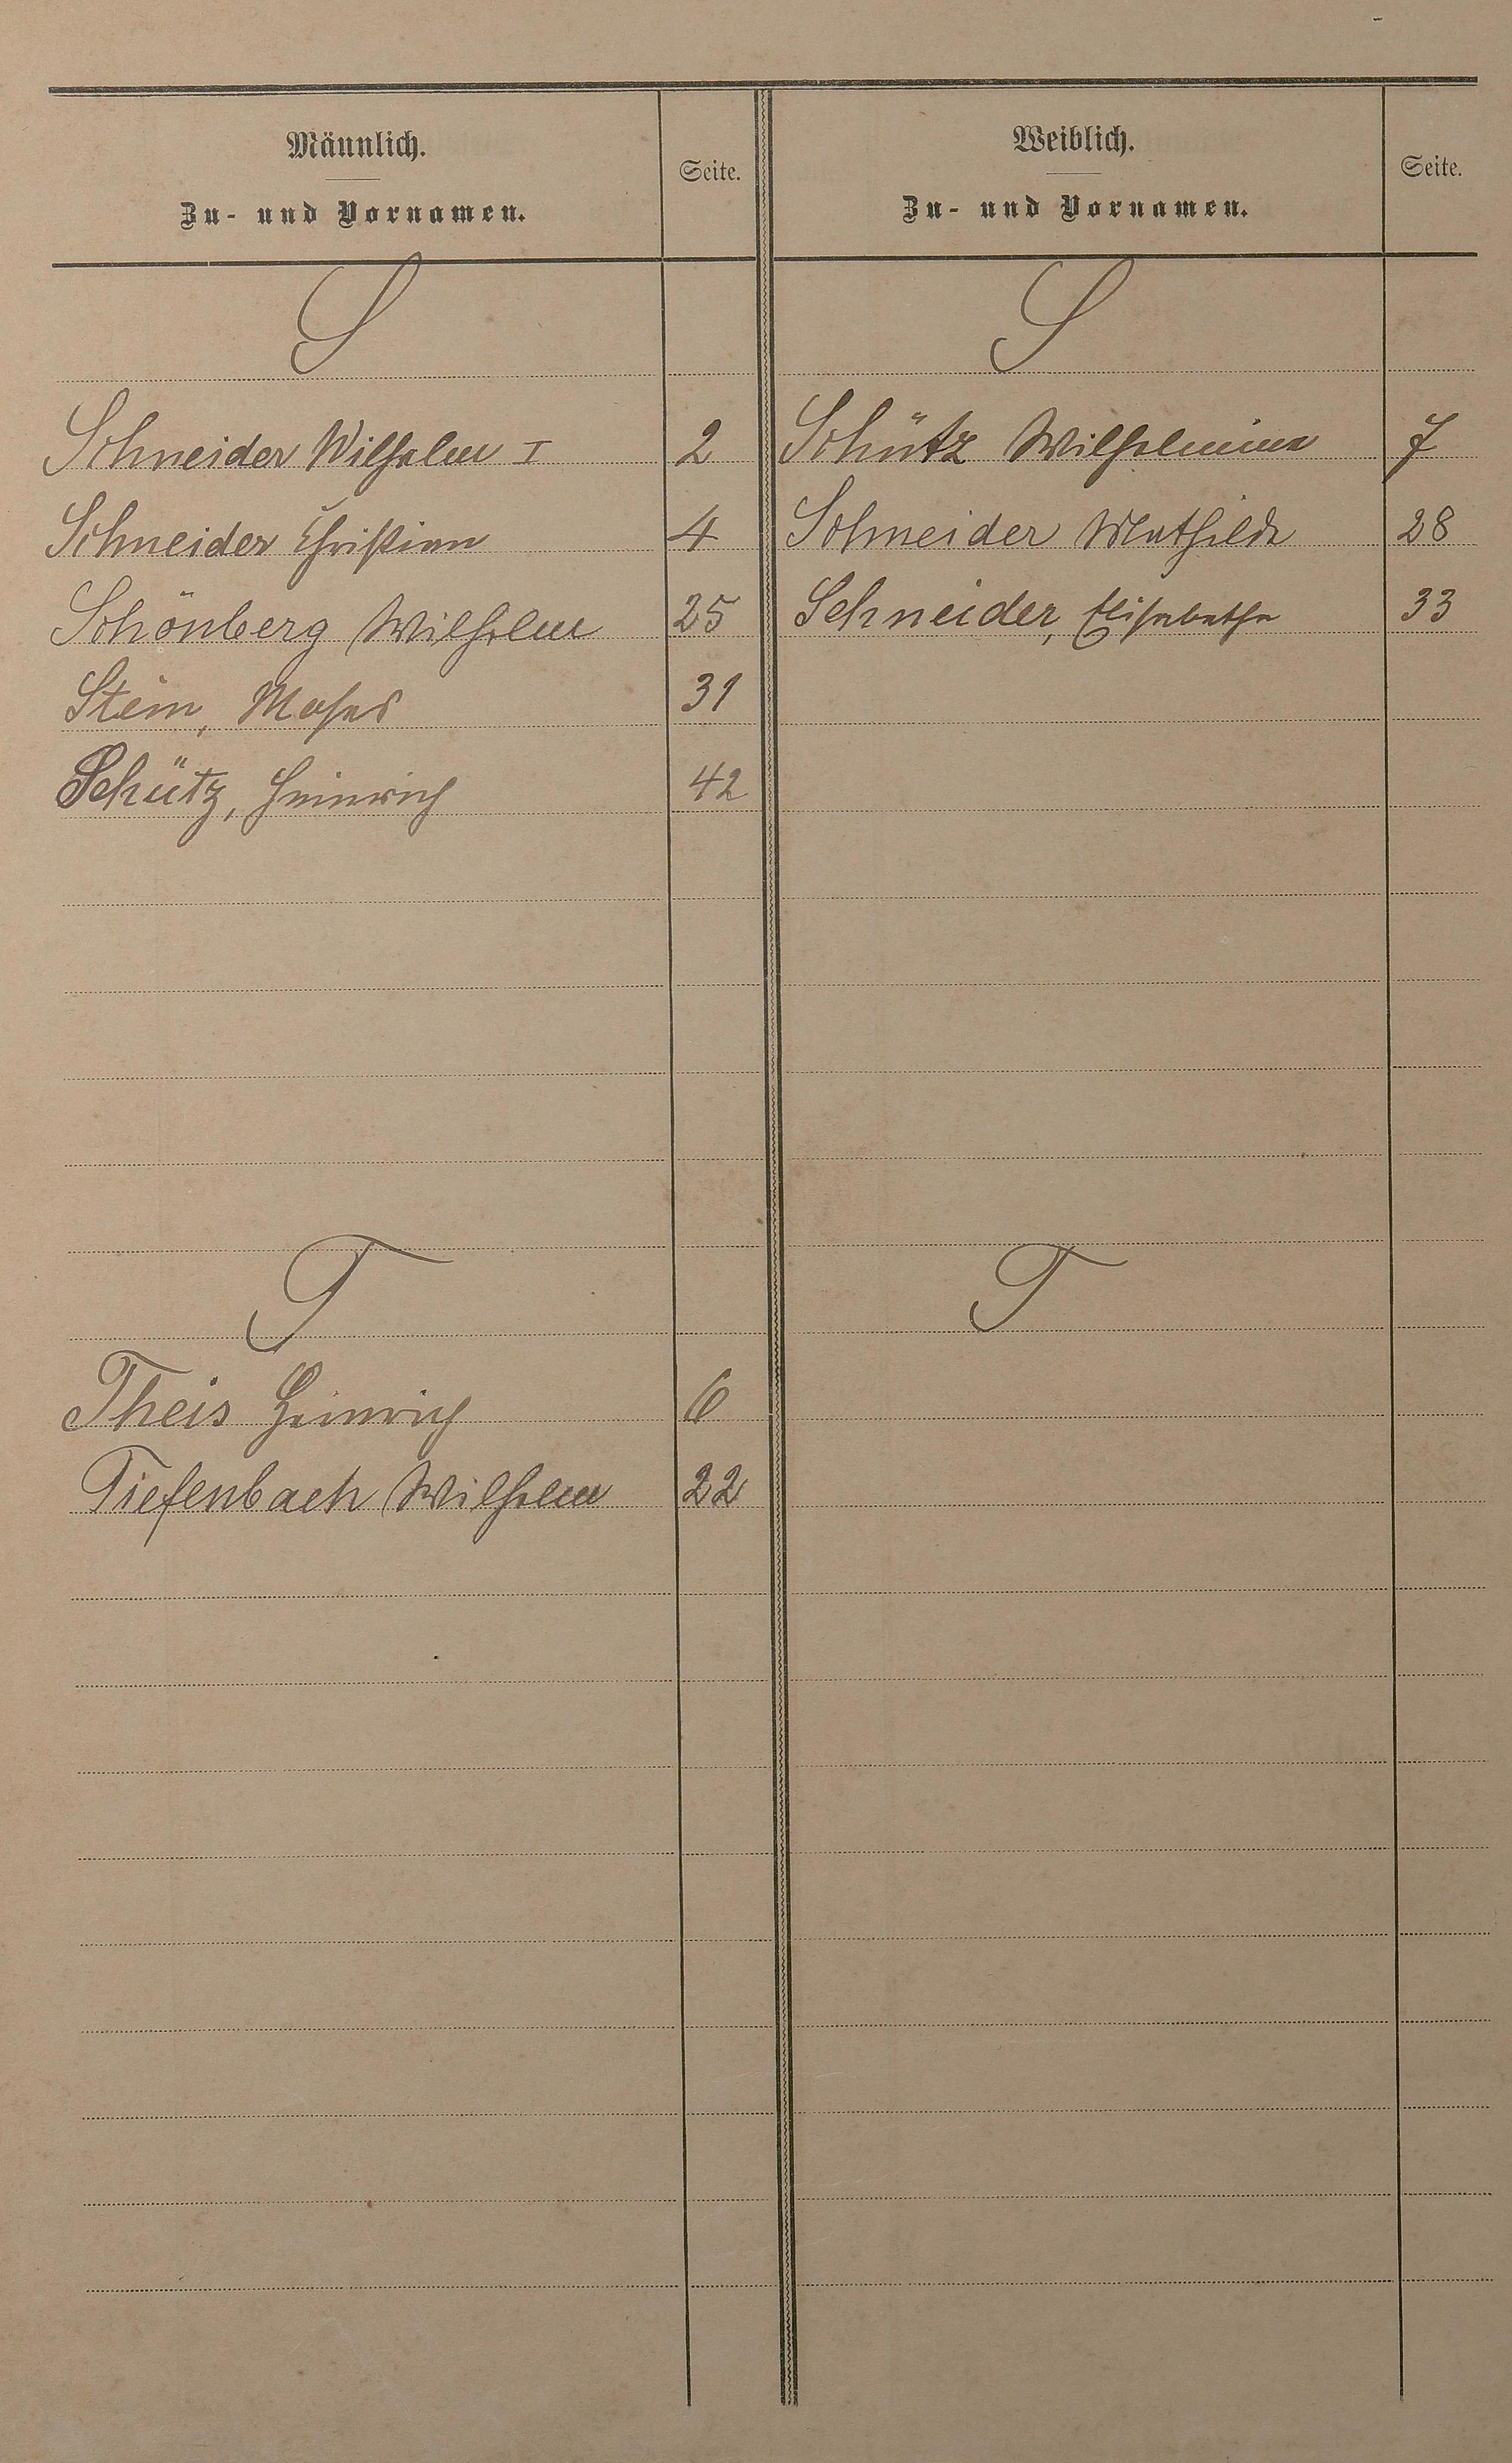 Männlich.
Zu- und Vornamen.
Seite.
Weiblich.
Zu- und Vornamen.
Seite.
S
S
Schneider Wilhelm I 2 Schütz Wilhelmine 7
Schneider Christian 4 Schneider Mathilde 28
Schönberg Wilhelm 25 Schneider, Elisabetha 33
Stein, Moses 31
Schütz, Heinrich 42
T
T
Theis Heinrich 6
Tiefenbach Wilhelm 22